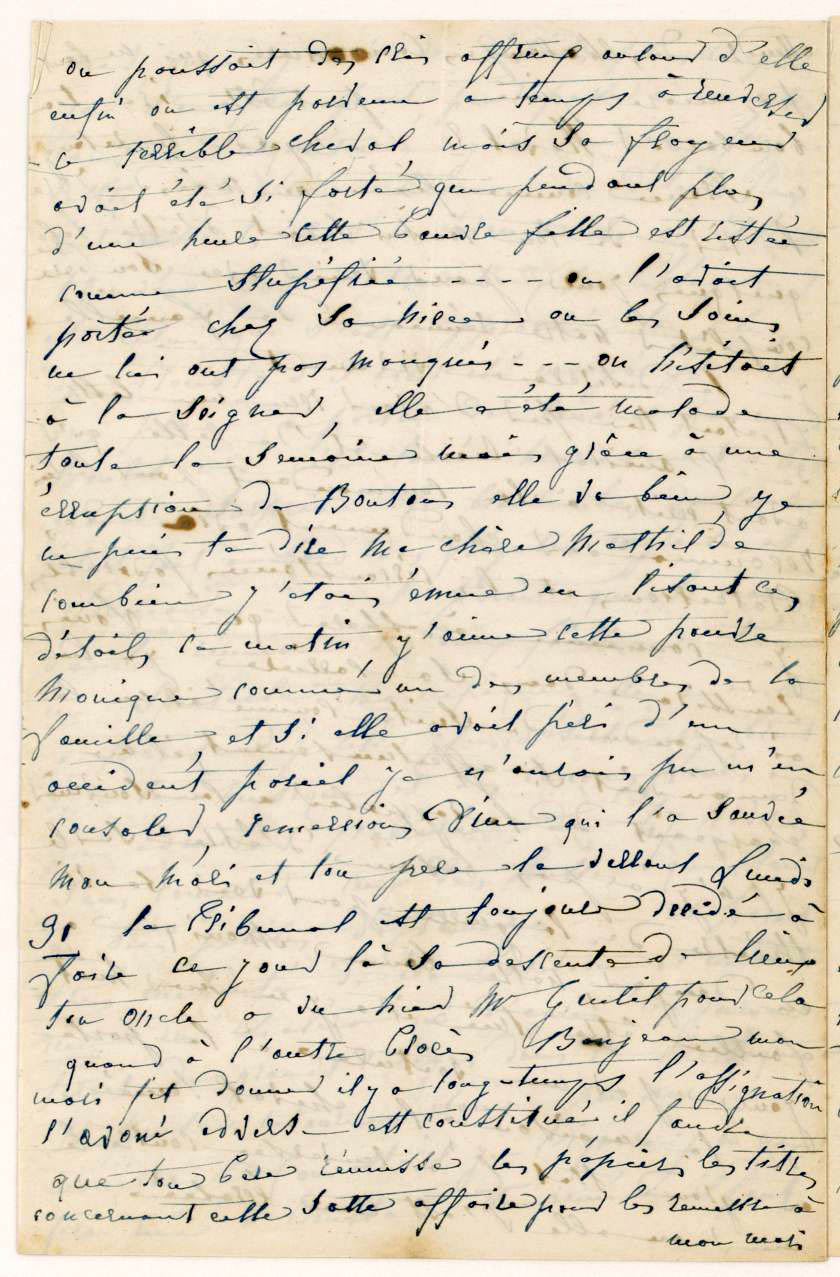 on poussait des cris affreux autour d'elle
enfin on est parvenu a temps à renverser
ce terrible cheval mais sa frayeur
avait été si forte, que pendant plus
d'une heure cette pauvre fille est restée
comme stupéfiée - - - - on l'avait
portée chez sa nièce ou les soins
ne lui ont pas manqués - - - on hésitait
à la soigner, elle a été malade
toute la semaine mais grâce à une
érruption de Boutons elle va bien, je
ne puis te dire Ma chère Mathilde
combien j'etais émue en lisant ces
détails ce matin, j'aime cette pauvre
Monique comme un des membres de la
famille, et si elle avait péri d'un
accident pareil je n'aurais pu m'en
consoler, remercions Dieu qui l'a sauvée
mon mari et ton père la verront Lundi
le Tribunal est toujours décidé à
faire ce jour là sa descente de lieux
ton oncle a vu hier Mr Gentil pour cela
quand à l'autre Procès Bonjean mon
mari fit donner il y a long-temps l'assignation
l'avoué adverse est constitué il faudra
que ton Père réunisse les papiers les titres
concernant cette sotte affaire pour les remettre à
mon mari